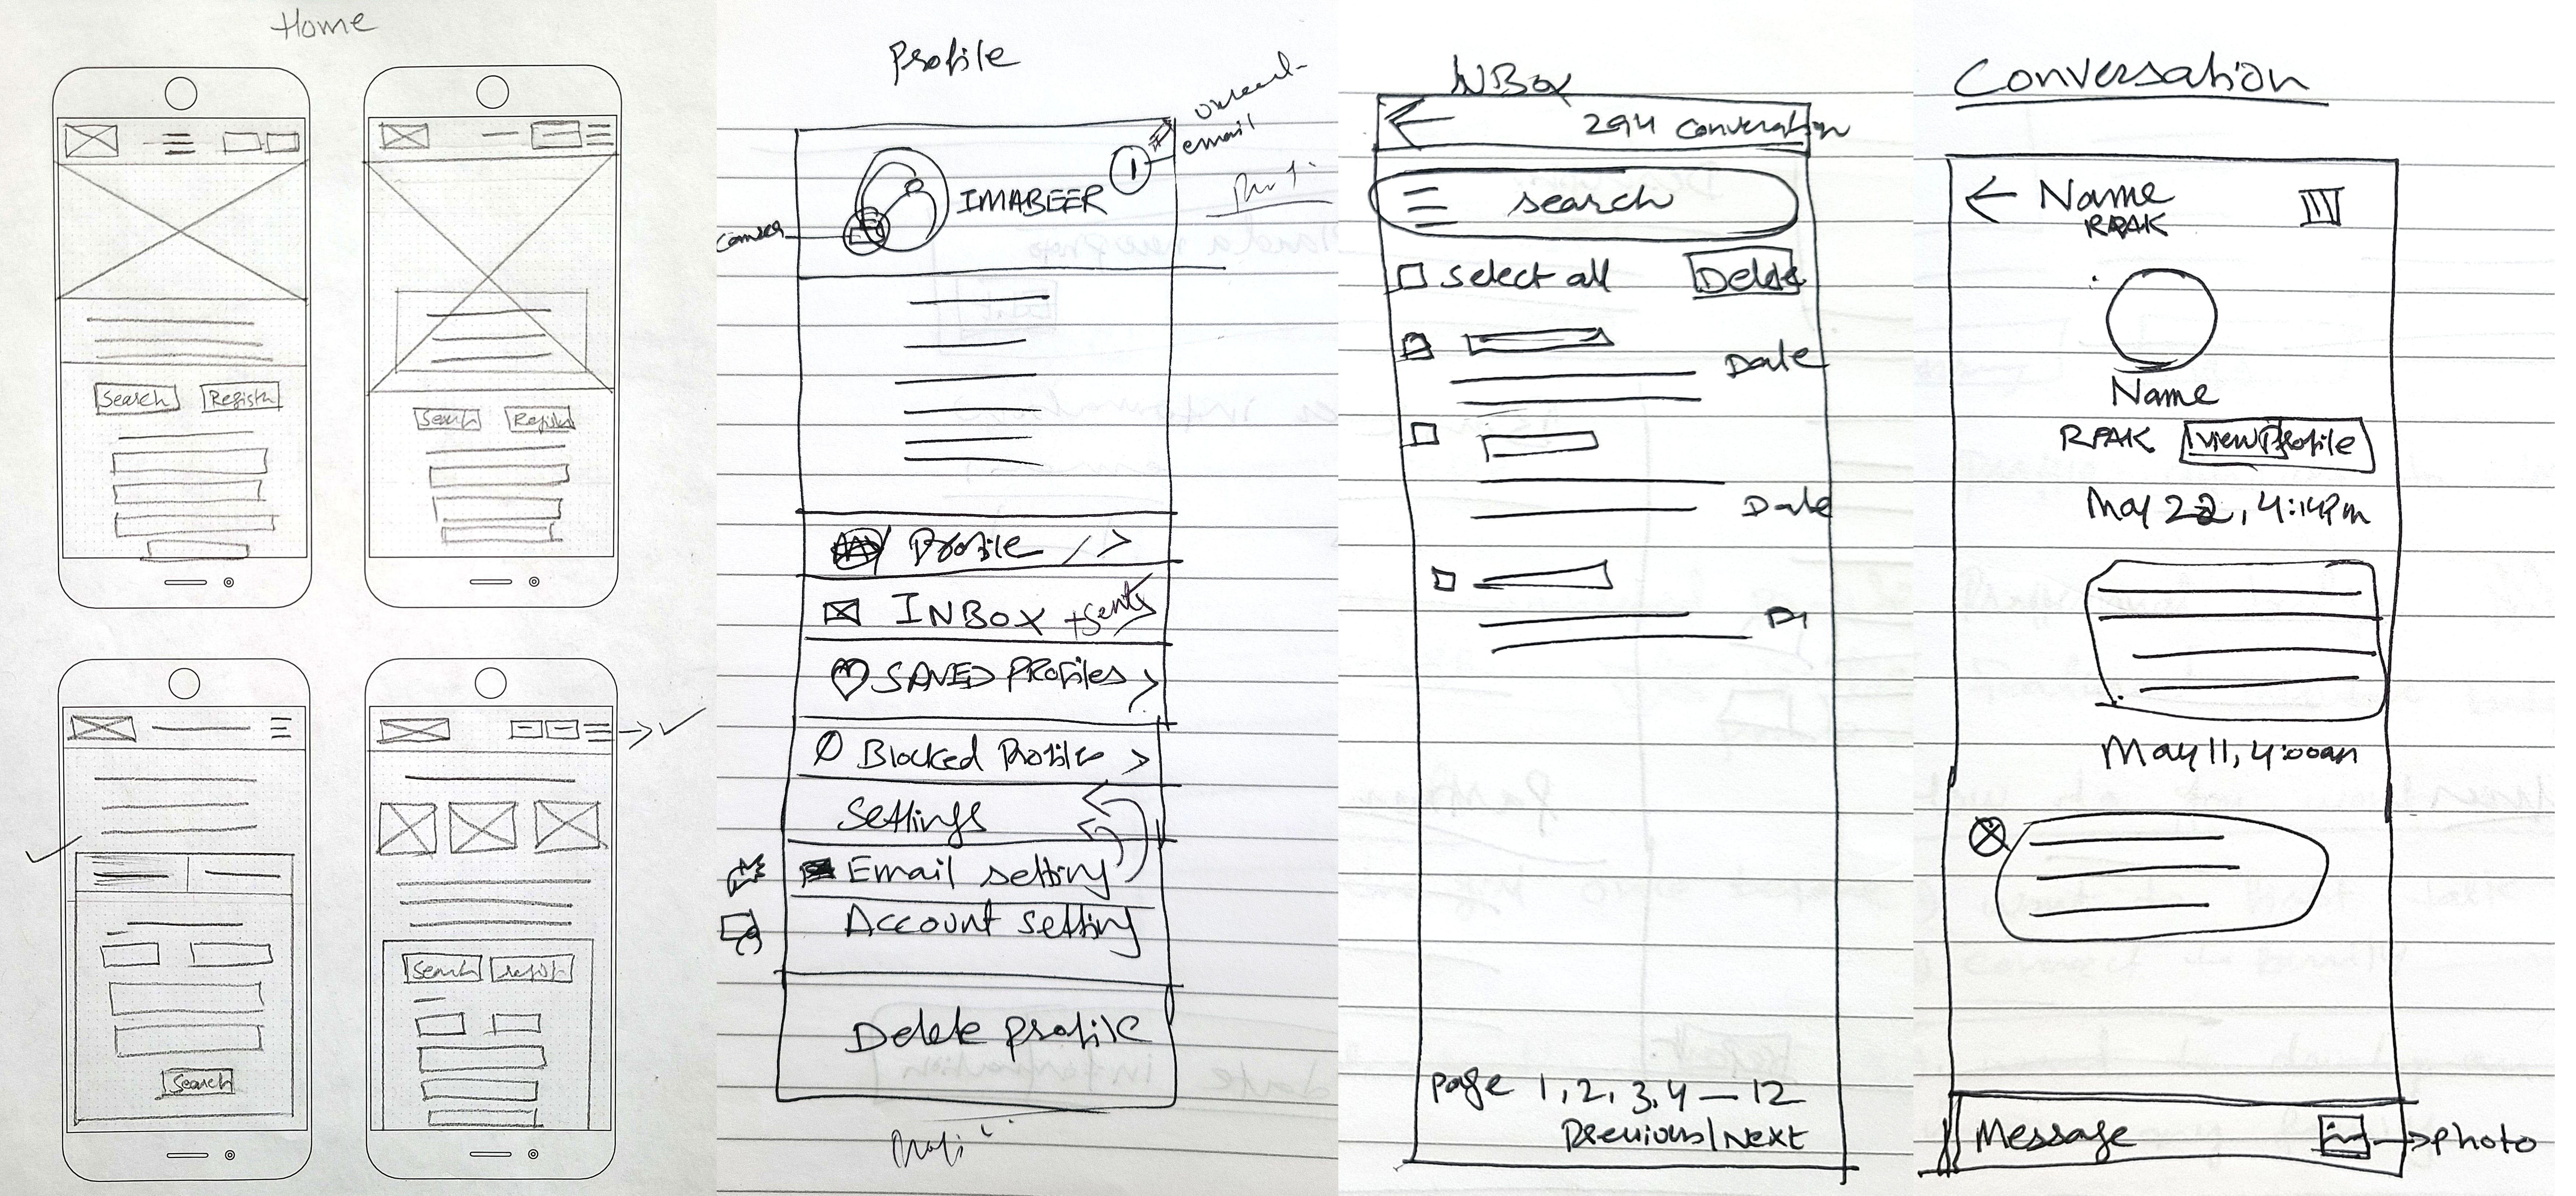 Home
Search
Register
Search
Search
Search
Profile
email
IMABEER
1
Profile >
INBOX + Sent >
SAVED PROfiles >
Blocked Profiles >
Settings
Email setting
Account setting
Delete profile
INBox
294 Converation
search
Select all
Delete
Date
Date
page 1, 2, 3, 4 — 12
Previous/Next
Conversation
Name
RPAK
Name
RPAK
View Profile
May 22, 4:14pm
May 11, 4:00am
Message
photo